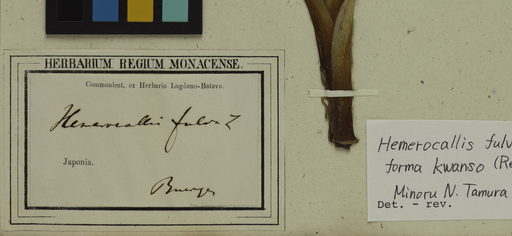 HERBARIUM REGIUM MONACENSE.
Communicat. ex Herbario Lugduno-Batavo.
Hemerocallis fulva L
Japonia.
Buerger
Hemerocallis fulv
forma kwanso (Re
Minoru N. Tamura
Det. - rev.